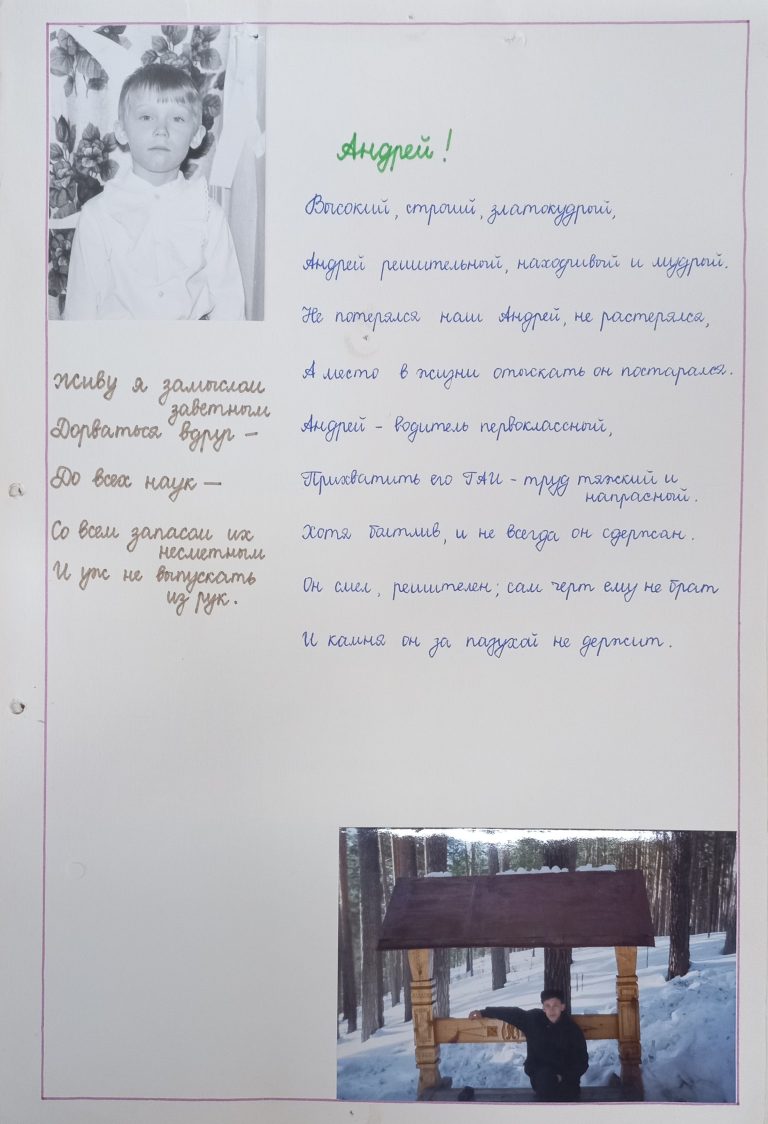 Андрей!
Высокий, строий, златокудрый,
Андрей решительный, находчивый и мудрый.
Не потерялся наш Андрей, не растерялся,
А место в жизни отыскать он постарался.
Андрей - водитель первоклассный,
Прихватить его ГАИ - труд тяжкий и
напрасный.
Хотя баитлив, и не всегда он сдержан.
Он смел, решителен; сам черт ему не брат
И камня он за пазухой не держит.
Живу я замыслом
заветным
Дорваться вдруг —
До всех наук —
Со всем запасом их
несметным
И уж не выпускать
из рук.